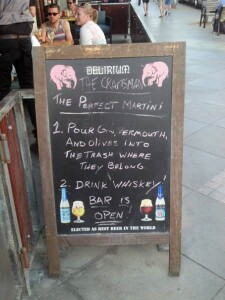 DELIRIUM
THE CRAFTSMAN
THE PERFECT MARTINI
1. POUR GIN, VERMOUTH,
AND OLIVES INTO
THE TRASH WHERE
THEY BELONG
2. DRINK WHISKEY!
BAR IS
OPEN!
ELECTED AS BEST BEER IN THE WORLD